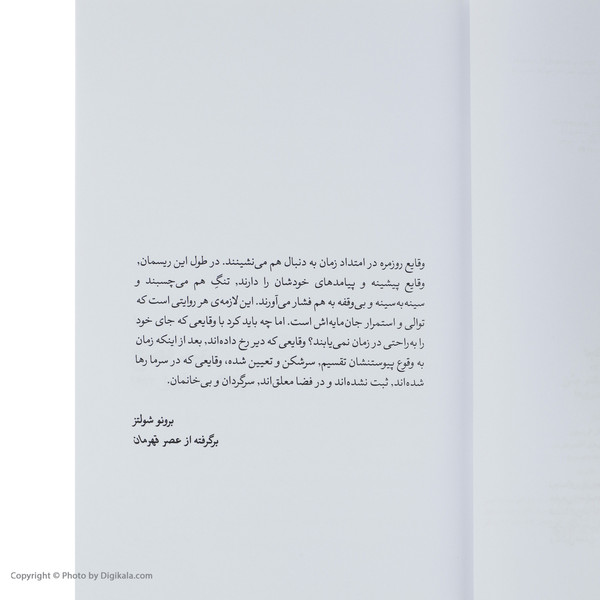 وقایع روزمره در امتداد زمان به دنبال هم می‌نشینند. در طول این ریسمان,
وقایع پیشینه و پیامدهای خودشان را دارند, تنگِ هم می‌چسبند و
سینه‌به‌سینه و بی‌وقفه به هم فشار می‌آورند. این لازمه‌ی هر روایتی است که
توالی و استمرار جان‌مایه‌اش است. اما چه باید کرد با وقایعی که جای خود
را به‌راحتی در زمان نمی‌یابند؟ وقایعی که دیر رخ داده‌اند, بعد از اینکه زمان
به وقوع پیوستنشان تقسیم, سرشکن و تعیین شده, وقایعی که در سرما رها
شده‌اند, ثبت نشده‌اند و در فضا معلق‌اند, سرگردان و بی‌خانمان.
برونو شولتز
برگرفته از عصر قهرمان:
Copyright © Photo by Digikala.com